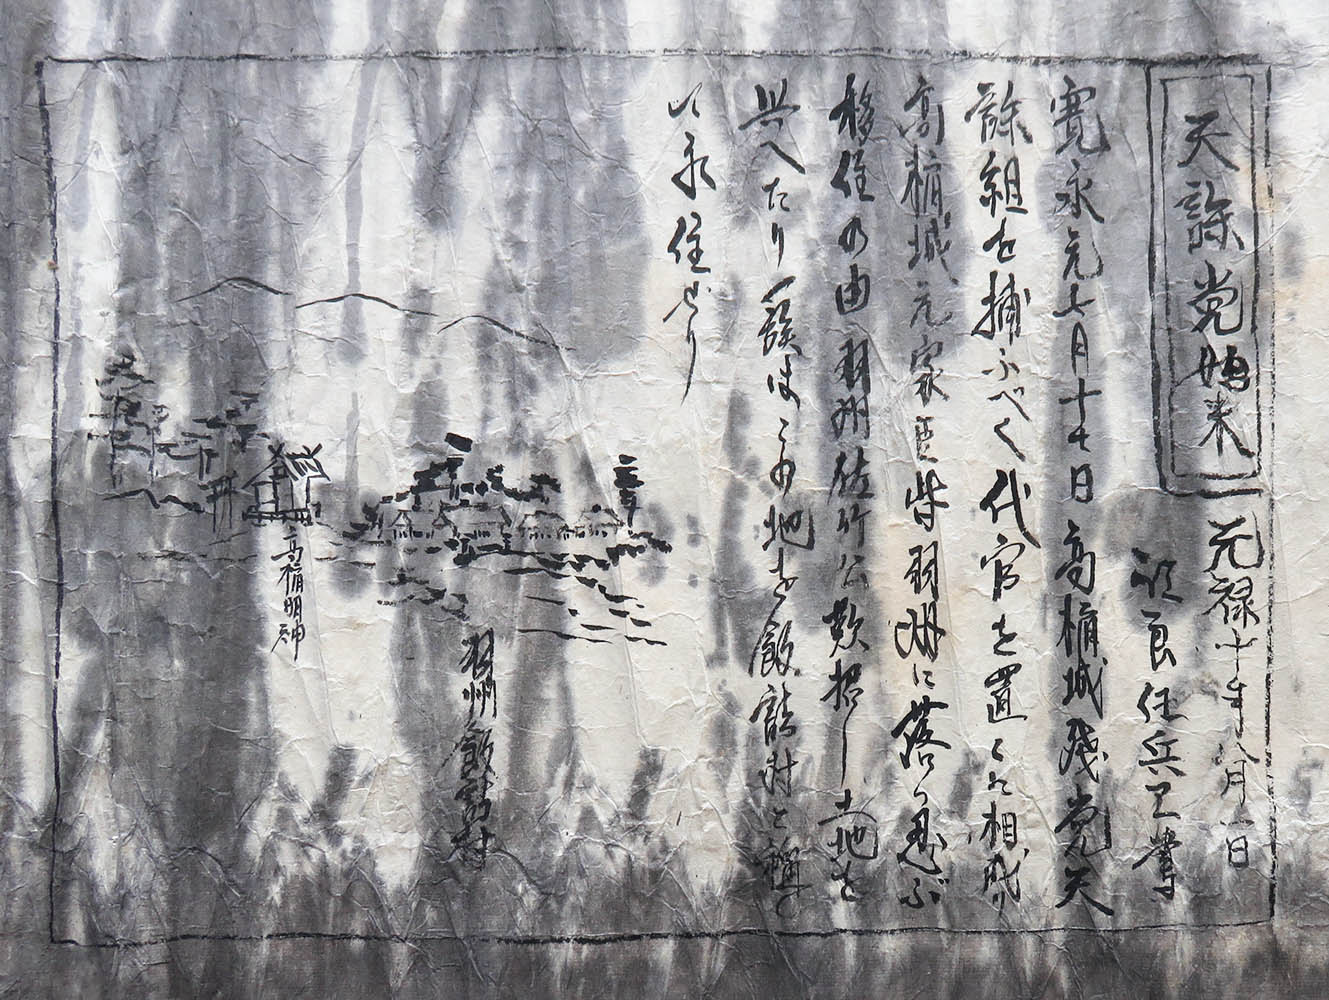 天誅党始末
元禄十年八月一日
任兵卫
寛永元七月十七日高楯城残党天
誅組を捕ふべく代官を置くと相成り
高楯城元家臣柴羽州に落ち忍ぶ
移住の由羽州佐竹公歓招し土地を
与へたり一族はこの地を飯詰村と称し
以永住せり
高楯明神
羽州飯詰村